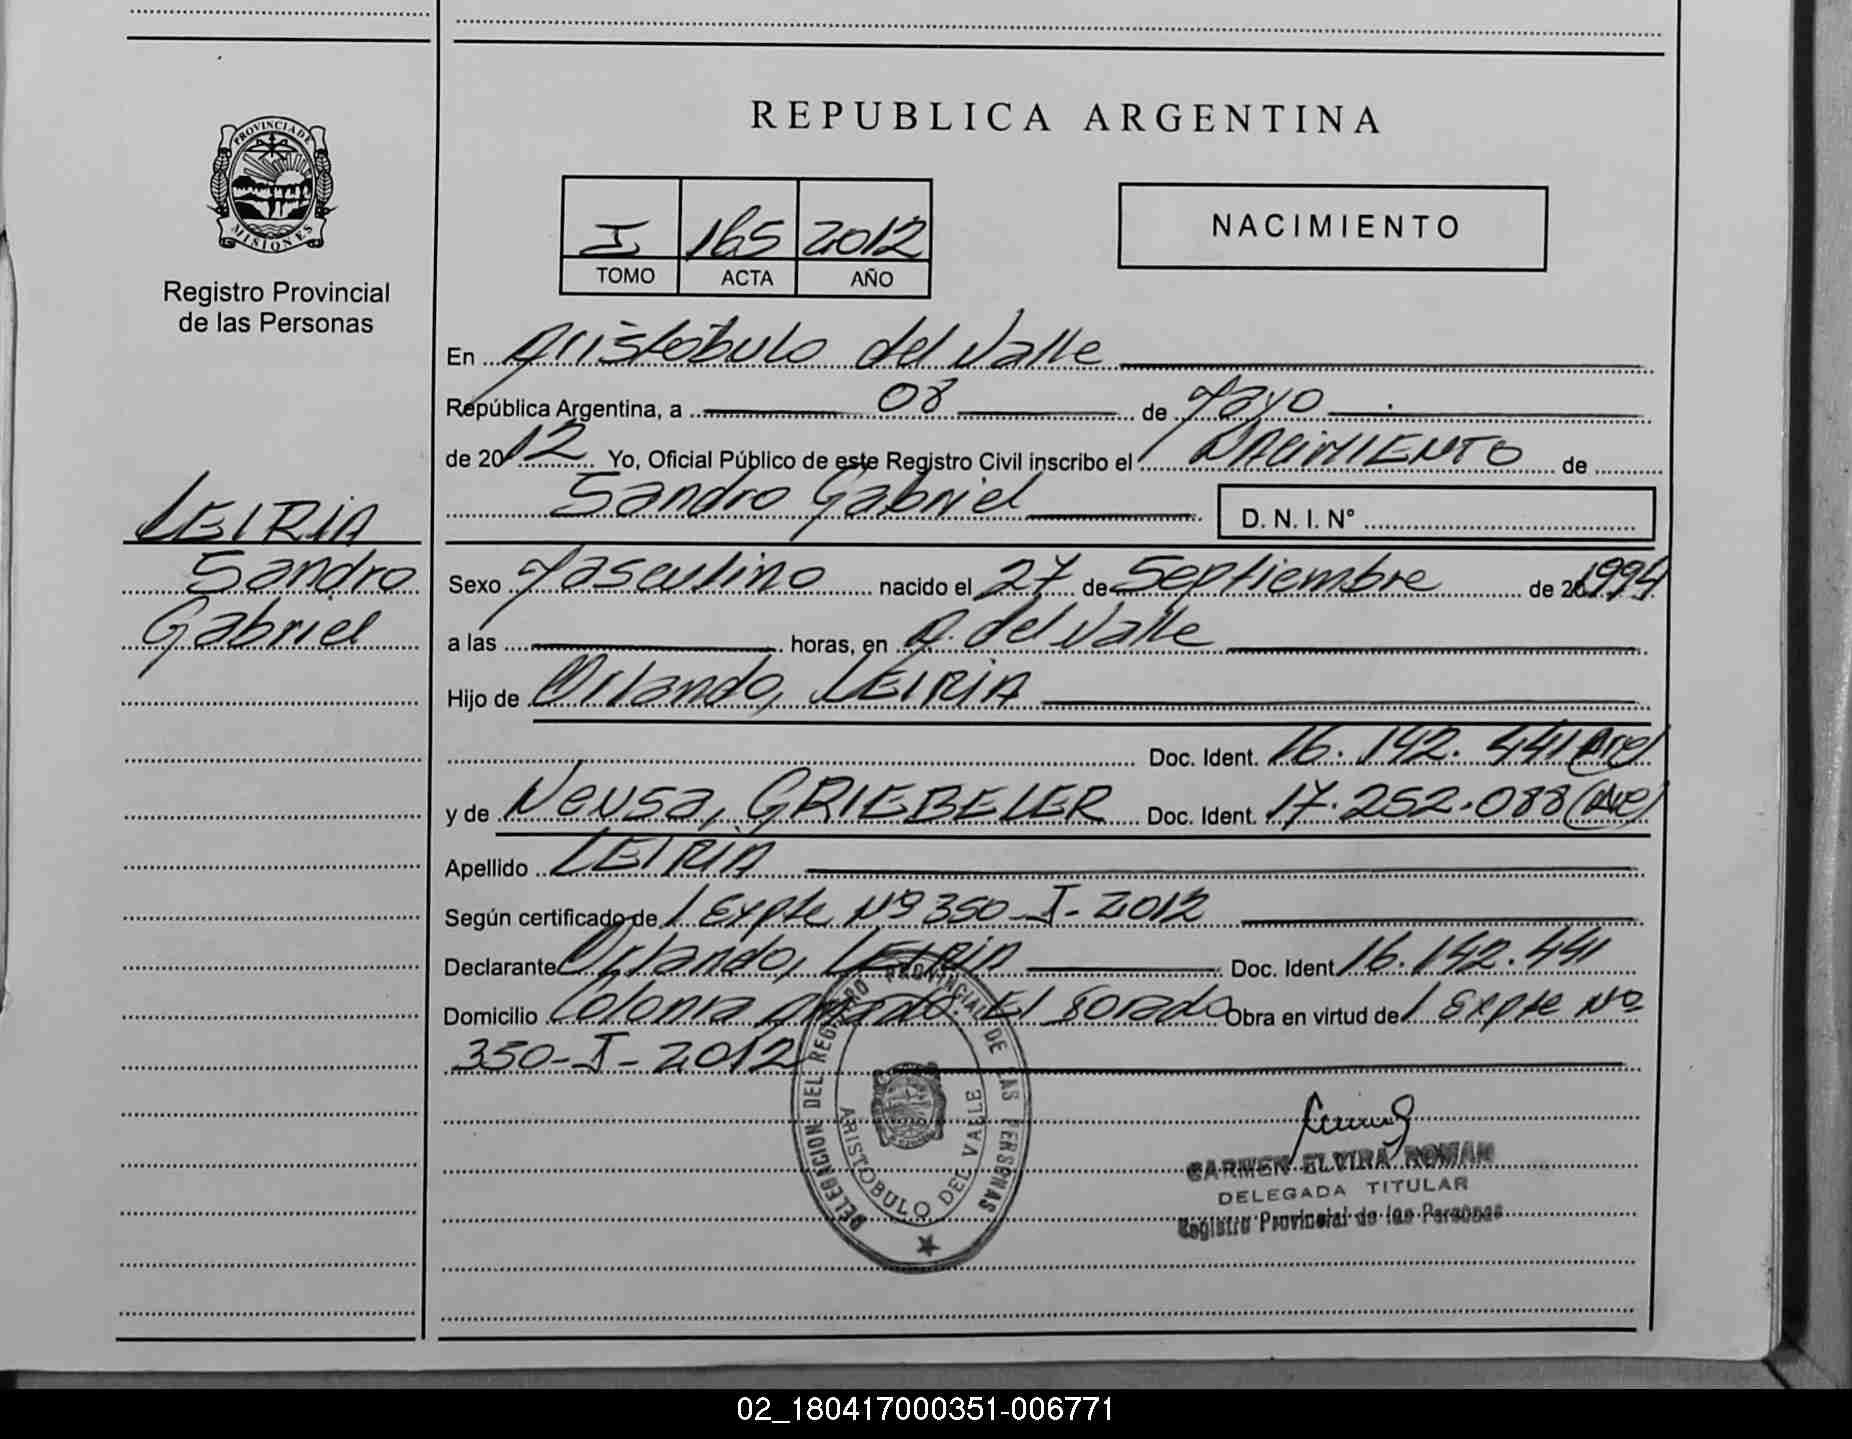 REPUBLICA ARGENTINA
PROVINCIA DE
MISIONES
Registro Provincial
de las Personas
I 165 2012
TOMO ACTA AÑO
NACIMIENTO
En Aristóbulo del Valle
República Argentina, a 08 de Mayo
de 2012 Yo, Oficial Público de este Registro Civil inscribo el NACIMIENTO de
Sandro Gabriel D. N. I. Nº
LEIRIA
Sandro
Gabriel
Sexo Masculino nacido el 27 de Septiembre de 20 1994
a las horas, en A. del Valle
Hijo de Orlando, LEIRIA
Doc. Ident. 16.142.441 (Arg)
y de Neusa, GRIEBELER Doc. Ident. 17.252.088 (Arg)
Apellido LEIRIA
Según certificado de 1 Expte Nº 350-I-2012
Declarante Orlando, LEIRIA Doc. Ident. 16.142.441
Domicilio Colonia El Dorado Obra en virtud de 1 Expte Nº
350-I-2012
DELEGACION DEL REGISTRO PROVINCIAL DE LAS PERSONAS
ARISTOBULO DEL VALLE
CARMEN ELVIRA ROMAN
DELEGADA TITULAR
Registro Provincial de las Personas
02_180417000351-006771